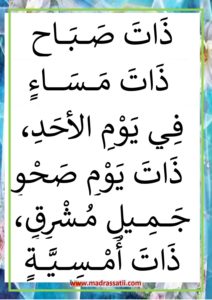 ذَاتَ صَـبَـاح
ذَاتَ مَـسَـاءٍ
فِي يَوْمِ الأَحَدِ،
ذَاتَ يَوْمِ صَحْوِ
جَـمِيلِ مُـشْرِقِ،
ذَاتَ أُمْـسِـيَّـةٍ
www.madrassatil.com